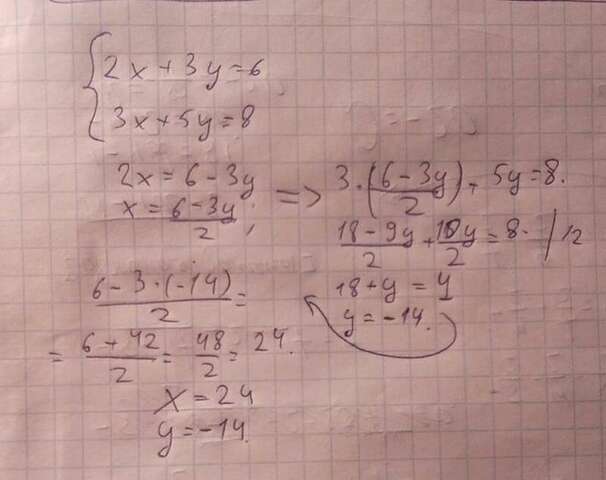 2x + 3y = 6
3x + 5y = 8
2x = 6 - 3y
x = (6 - 3y)/2 ; => 3 · (6 - 3y)/2 + 5y = 8.
(18 - 9y)/2 + 10y/2 = 8 · /12
18 + y = 4
y = -14.
(6 - 3 · (-14))/2 =
= (6 + 42)/2 = 48/2 = 24.
x = 24
y = -14